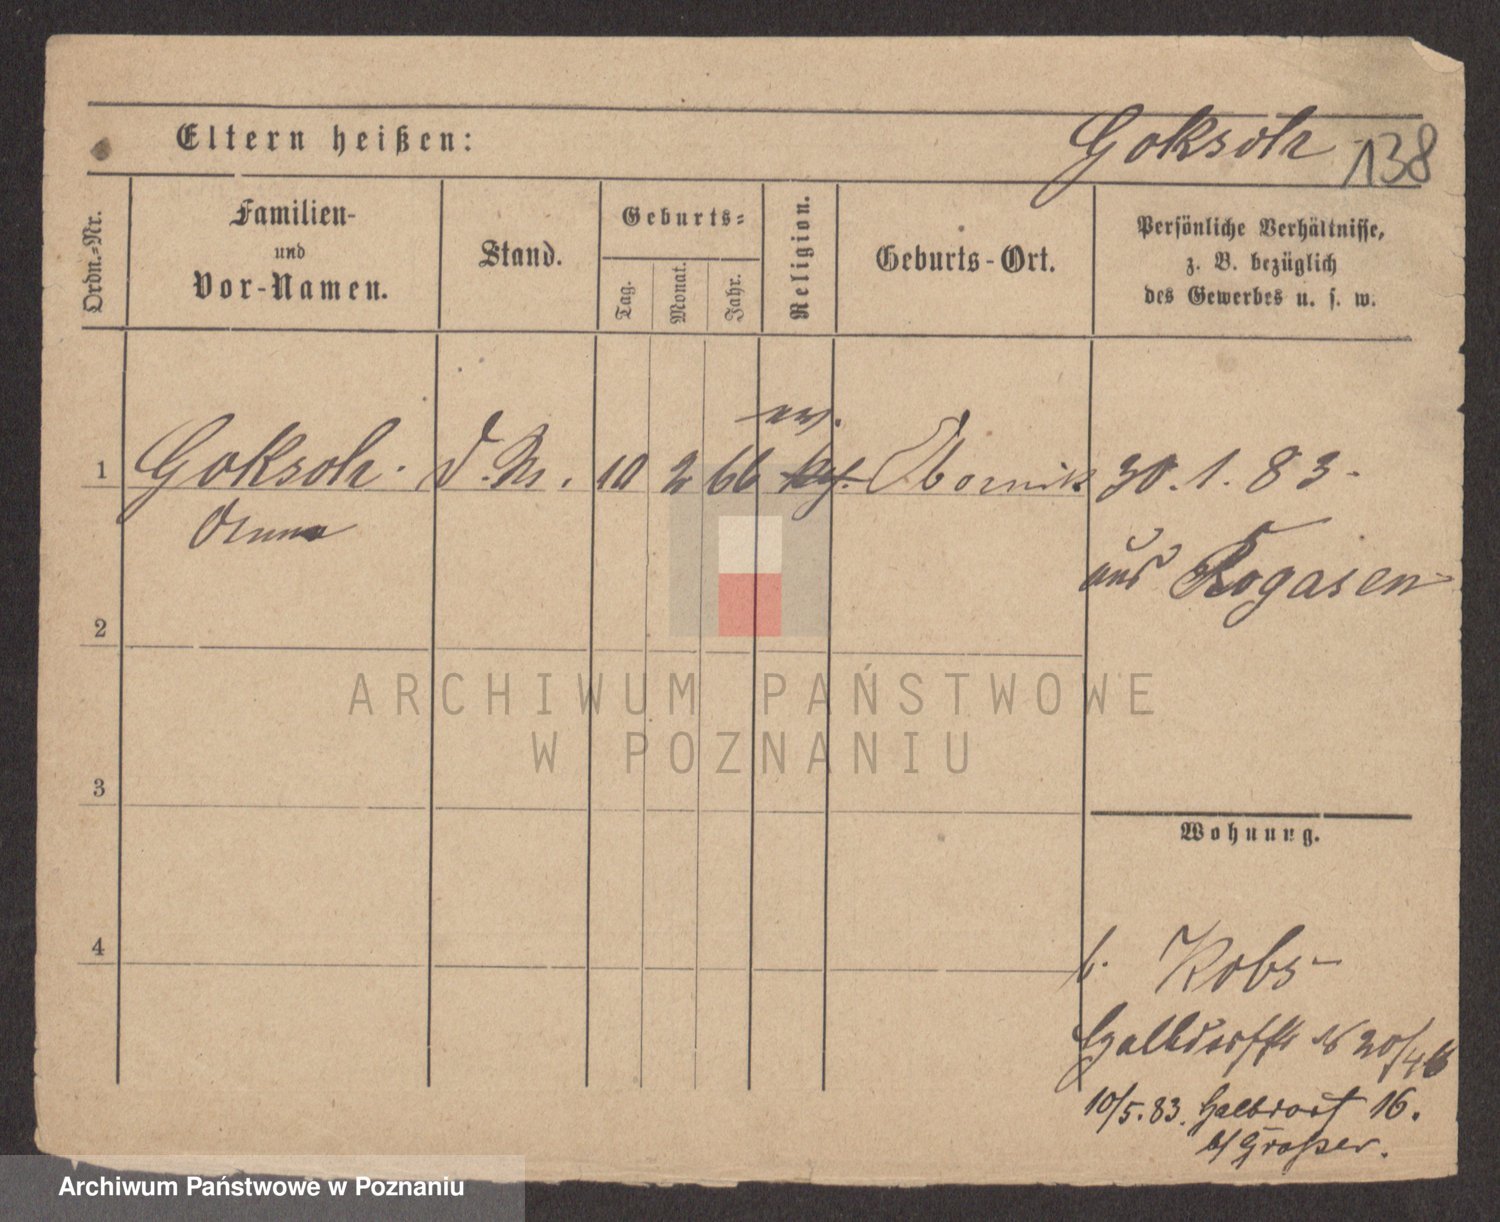 Eltern heißen:
Goksch 138
Ordn.-Nr.
Familien-
und
Vor-Namen.
Stand.
Geburts-
Tag.
Monat.
Jahr.
Religion.
Geburts-Ort.
Persönliche Verhältnisse,
z. B. bezüglich
des Gewerbes u. s. w.
ev.
1 Goksch. d. M. 10 2 66 kath. Obornik 30. 1. 83.
Anna
aus Rogasen
2
3
4
ARCHIWUM PAŃSTWOWE
W POZNANIU
Wohnung.
b. Kobs
20/4
10/5. 83. Halbdorf 16.
b/ Grosser.
Archiwum Państwowe w Poznaniu